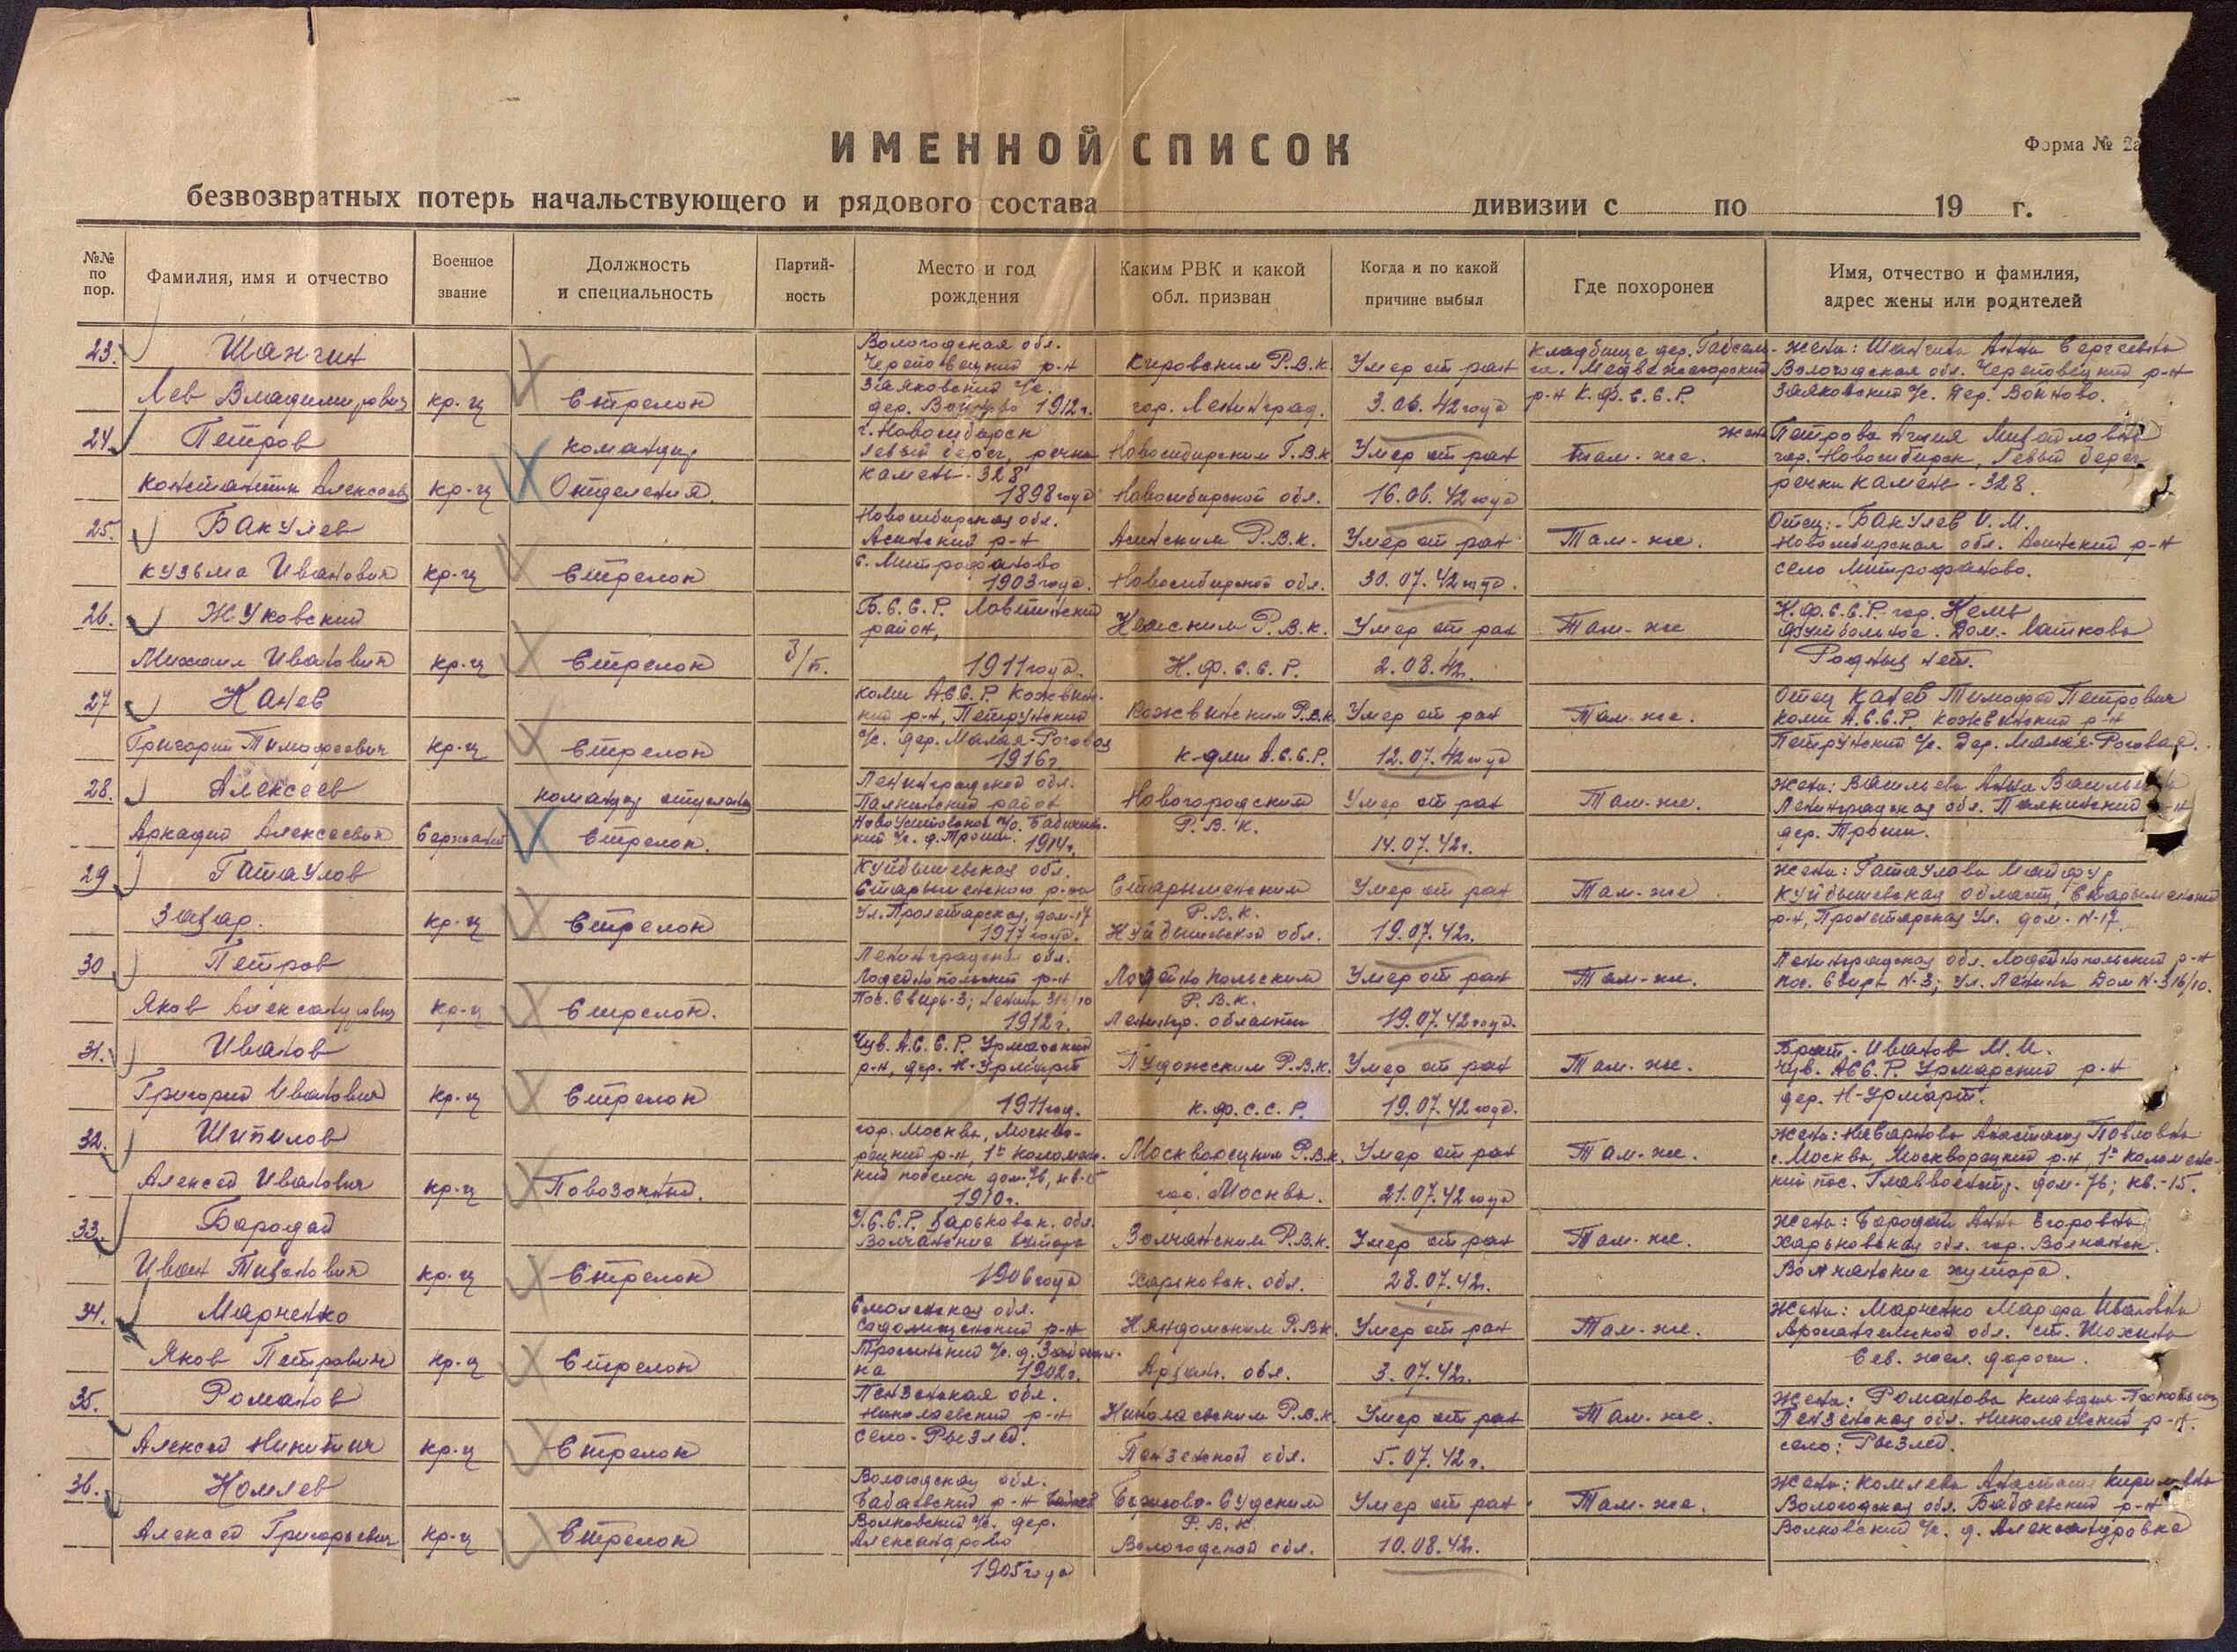 ИМЕННОЙ СПИСОК
Форма № 2а
безвозвратных потерь начальствующего и рядового состава дивизии с по 19 г.
№№ по пор.
Фамилия, имя и отчество
Военное звание
Должность и специальность
Партийность
Место и год рождения
Каким РВК и какой обл. призван
Когда и по какой причине выбыл
Где похоронен
Имя, отчество и фамилия, адрес жены или родителей
23. Шангин
Лев Владимирович кр-ц Стрелок
Вологодская обл.
Череповецкий р-н
дер. Войново 1912г.
Кировским Р.В.К.
гор. Ленинград.
Умер от ран
3.06.42 года
Кладбище дер.
Медвежегорский
р-н К.Ф.С.С.Р.
Жена: Шангина Анна Сергеевна
Вологодская обл. Череповецкий р-н
дер. Войново.
24. Петров
Константин кр-ц Командир Отделения.
г. Новосибирск
левый берег, речка
Камень-328
1898 года
Новосибирским Г.В.К
Новосибирской обл.
Умер от ран
16.06.42 года
Там-же.
жена Петрова Михайловна
гор. Новосибирск, Левый берег
речки Камень-328.
25. Бакулев
Кузьма Иванович кр-ц Стрелок
Новосибирская обл.
Асинский р-н
с. Митрофаново
1903 года.
Асинским Р.В.К.
Новосибирской обл.
Умер от ран
30.07.42 года.
Там-же.
Отец:- Бакулев И.М.
Новосибирская обл. Асинский р-н
село Митрофаново.
26. Жуковский
Михаил Иванович кр-ц Стрелок б/п.
Б.С.С.Р.
район,
1911 года.
Кемским Р.В.К.
К.Ф.С.С.Р.
Умер от ран
2.08.42г.
Там-же
К.Ф.С.С.Р. гор. Кемь
Родных нет.
27 Канев
Григорий Тимофеевич кр-ц Стрелок
Коми А.С.С.Р. Кожвин-
кий р-н, Петрунский
с/с. дер. Малая-Роговая
1916г.
Кожвинским Р.В.К.
Коми А.С.С.Р.
Умер от ран
12.07.42 года
Там-же.
Отец Канев Тимофей Петрович
Коми А.С.С.Р. Кожвинский р-н
Петрунский с/с. дер. Малая-Роговая.
28. Алексеев
Аркадий Алексеевич Сержант Командир отделения Стрелок.
Ленинградской обл.
Палкинский район
1914г.
Новогородским
Р.В.К.
Умер от ран
14.07.42г.
Там-же.
Жена: Васильева Анна
Ленинградская обл. Палкинский р-н
29 Гатаулов
кр-ц Стрелок
Куйбышевская обл.
ул. Пролетарская, дом-17
1917 года.
Р.В.К.
Куйбышевской обл.
Умер от ран
19.07.42г.
Там-же.
Жена: Гатаулова
Куйбышевская область,
р-н, Пролетарская ул. дом-N-17.
30 Петров
Яков Александрович кр-ц Стрелок.
Ленинградская обл.
Лодейнопольский р-н
Пос. Свирь-3;
1912г.
Лодейнопольским
Р.В.К.
Ленингр. области
Умер от ран
19.07.42 года.
Там-же.
Ленинградская обл. Лодейнопольский р-н
пос. Свирь N-3; ул. Ленина Дом N-316/10.
31. Иванов
Григорий Иванович кр-ц Стрелок
Чув. А.С.С.Р. Урмарский
р-н, дер. Н-Урмары
1911 год.
Пудожским Р.В.К.
К.Ф.С.С.Р.
Умер от ран
19.07.42 года.
Там-же.
Брат,- Иванов М.И.
Чув. АССР. Урмарский р-н
32. Шипилов
Алексей Иванович кр-ц Повозочный.
гор. Москва, Москво-
рецкий р-н,
1910г.
Москворецким Р.В.К.
гор. Москва.
Умер от ран
21.07.42 года
Там-же.
Жена: Анастасия Павловна
г. Москва, Москворецкий р-н, 1й Коломенс-
кий пос. дом-76; кв.-15.
33. Бородай
Иван кр-ц Стрелок
У.С.С.Р. Харьковск. обл.
Волчанские хутора
1906 года
Волчанским Р.В.К.
Харьковск. обл.
Умер от ран
28.07.42г.
Там-же.
Жена: Бородай Анна Егоровна
Харьковская обл. гор. Волчанск.
Волчанские хутора.
34. Марченко
Яков Петрович кр-ц Стрелок
Смоленская обл.
1902г.
Няндомским Р.В.К.
Архан. обл.
Умер от ран
3.07.42г.
Там-же.
Жена: Марченко Марфа Ивановна
Архангельской обл. ст. Шожма
Сев. жел. дороги.
35. Романов
Алексей Никитич кр-ц Стрелок
Пензенская обл.
Николаевский р-н
село-
Николаевским Р.В.К
Пензенской обл.
Умер от ран
5.07.42г.
Там-же.
Жена: Романова Клавдия
Пензенская обл. Николаевский р-н.
село:
36. Комлев
Алексей Григорьевич кр-ц Стрелок
Вологодская обл.
Бабаевский р-н
Волковский с/с. дер.
Александрово
1905 года
Борисово-Судским
Р.В.К.
Вологодской обл.
Умер от ран.
10.08.42г.
Там-же.
Жена: Комлева Анастасия Кириловна
Вологодская обл. Бабаевский р-н
Волковский с/с. д. Александровка